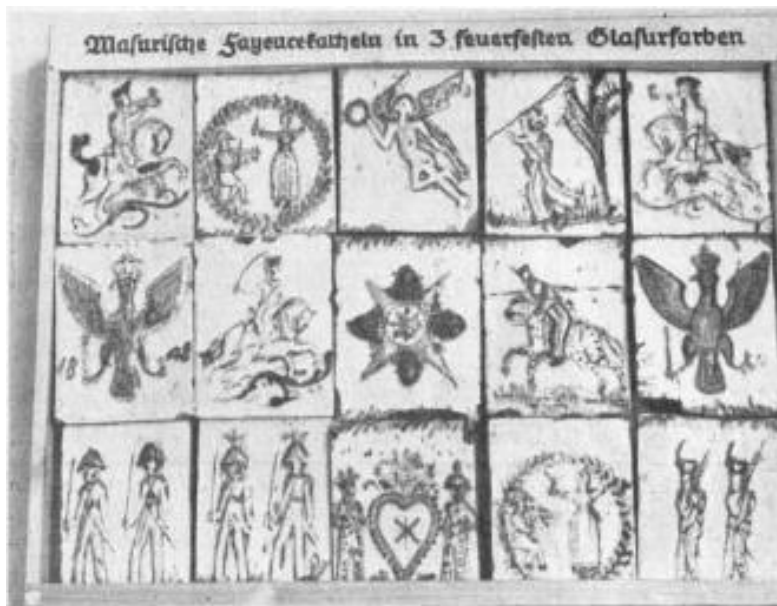 Masurische Fayencekacheln in 3 feuerfesten Glasurfarben
18